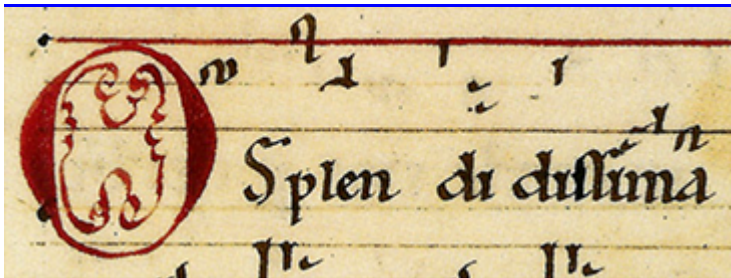 O Splen di dissima